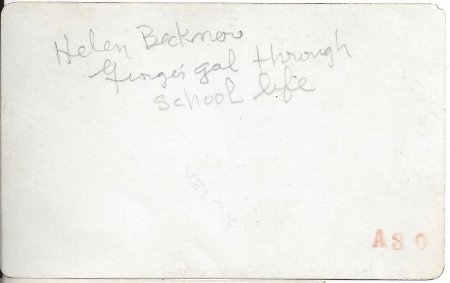 Helen Beckmow
George's gal through
school life
VELOX
A80